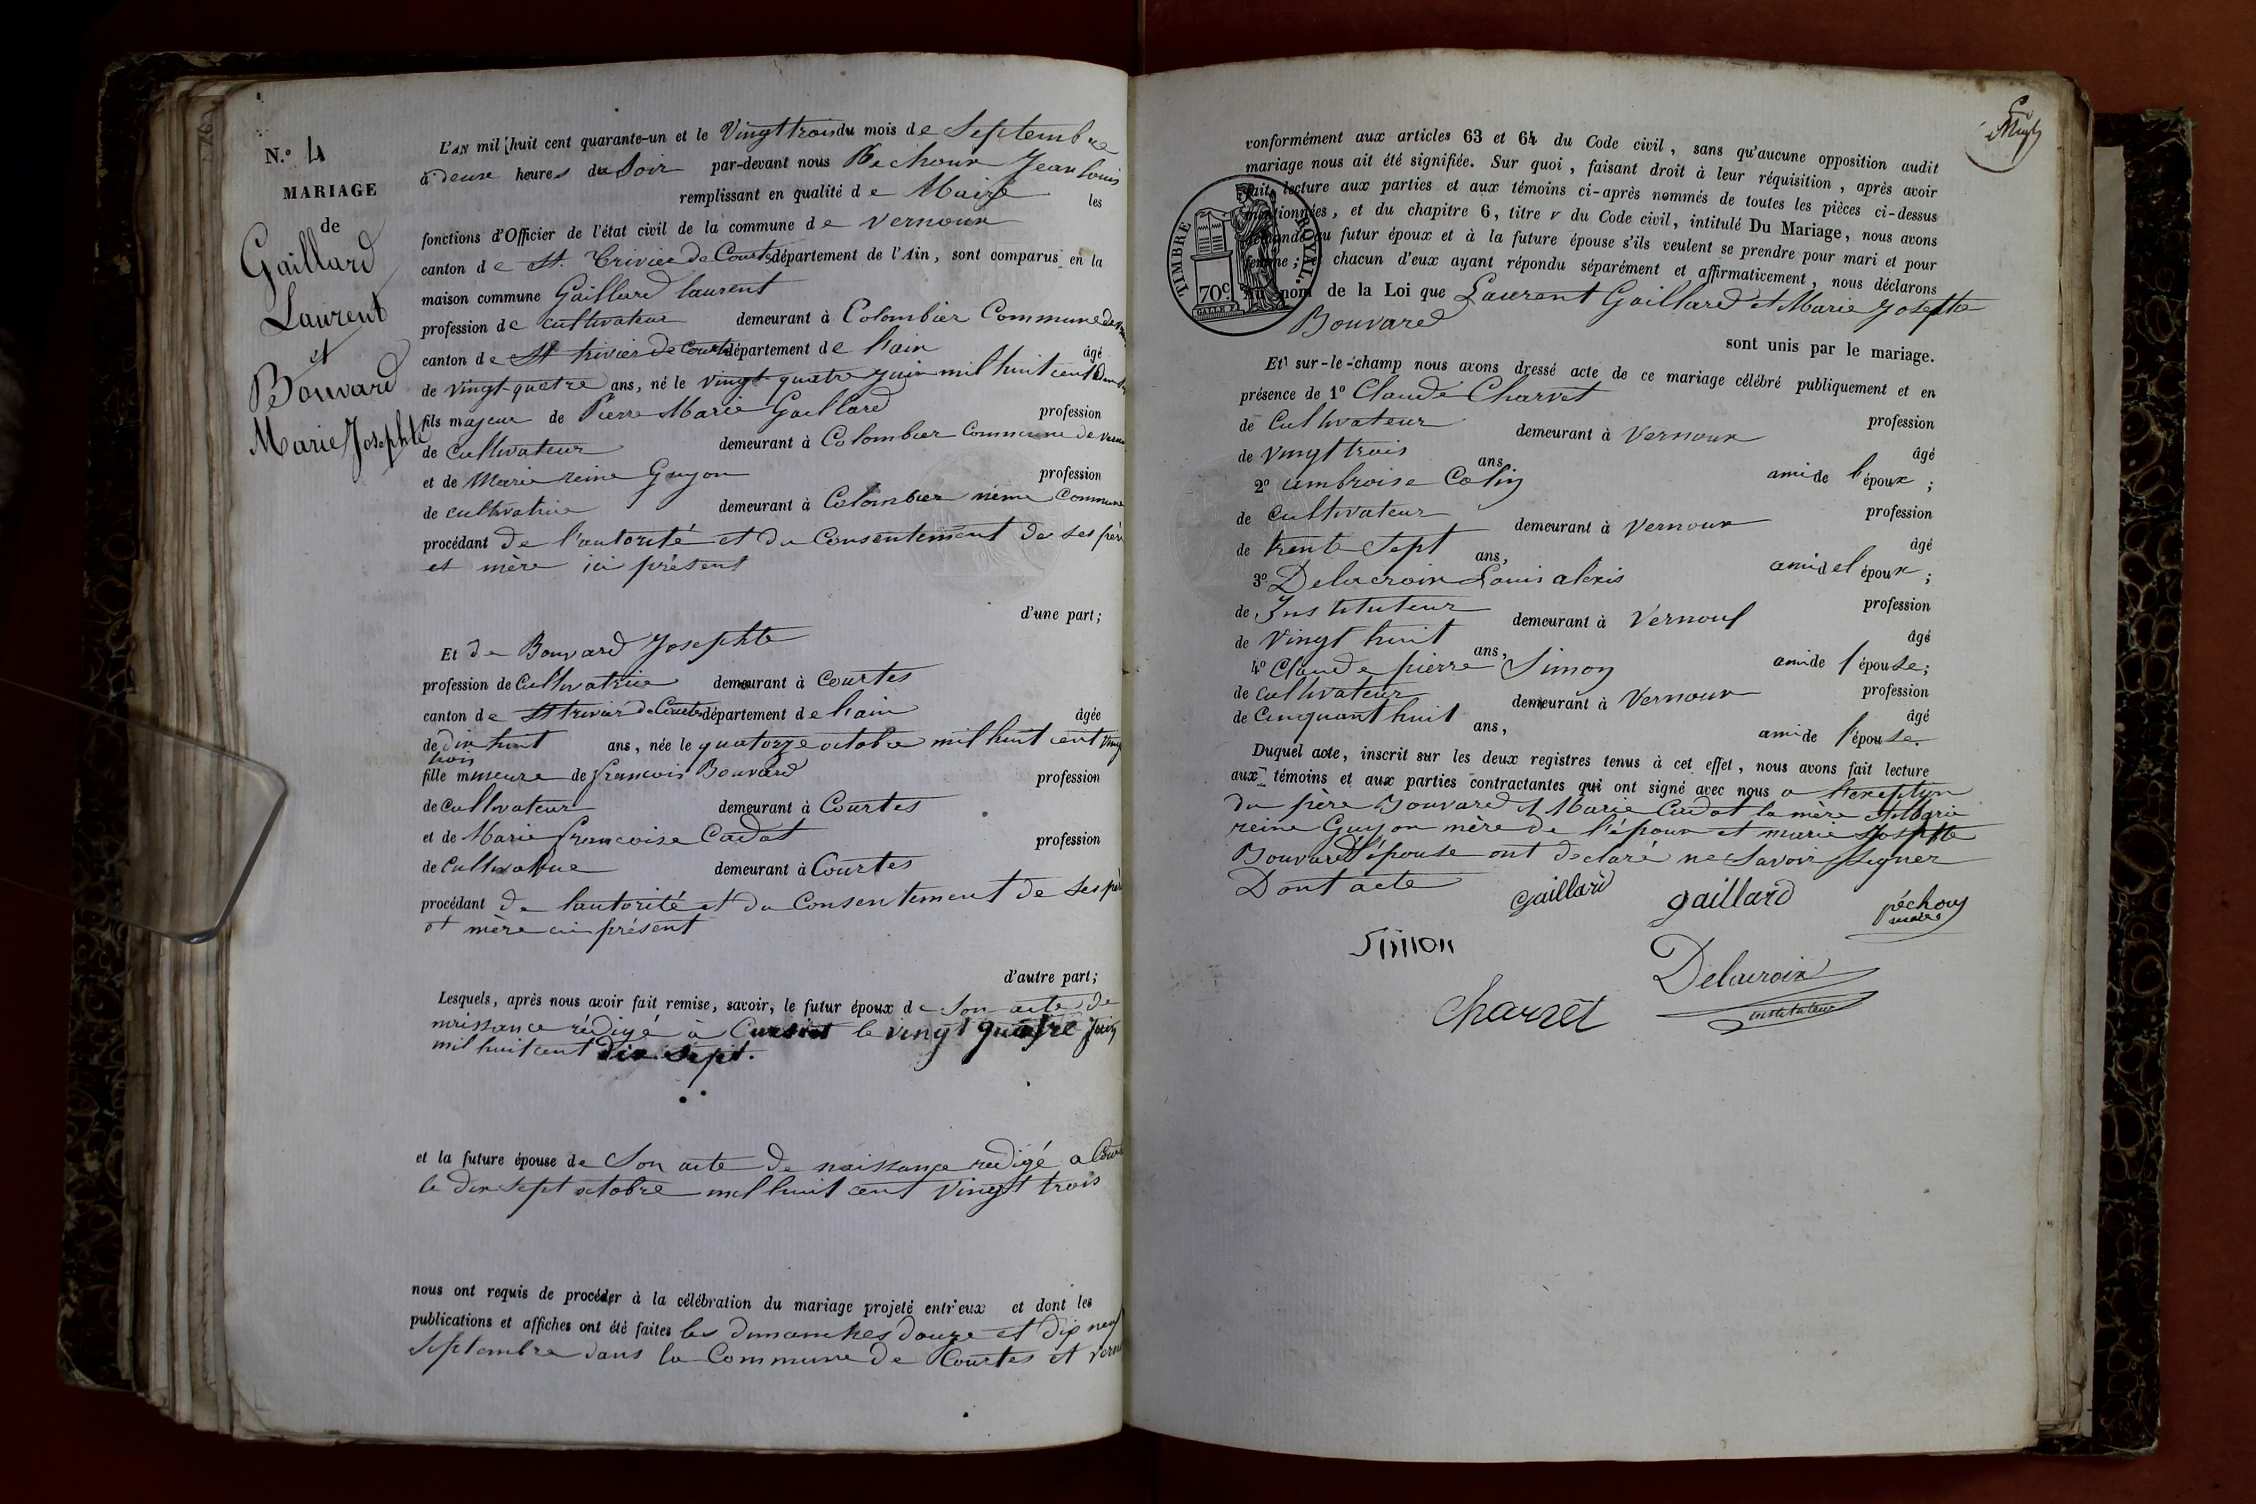 N.° 4
MARIAGE
de
Gaillard
Laurent
et
Bouvard
Marie Josephte
L'AN mil huit cent quarante-un et le Vingt trois du mois de Septembre
à deux heures du Soir par-devant nous Pechoux Jean Louis
remplissant en qualité de Maire les
fonctions d'Officier de l'état civil de la commune de Vernoux
canton de St. Trivier de Courtes département de l'Ain, sont comparus en la
maison commune Gaillard laurent
profession de cultivateur demeurant à Colombier Commune de
canton de St trivier de Courtes département de l'ain âgé
de vingt quatre ans, né le vingt quatre juin mil huit cent
fils majeur de Pierre Marie Gaillard profession
de cultivateur demeurant à Colombier Commune de
et de Marie reine Guyon profession
de cultivatrice demeurant à Colombier même Commune
procédant de l'autorité et du Consentement de ses père
et mère ici présent
d'une part;
Et de Bouvard Josephte
profession de Cultivatrice demeurant à Courtes
canton de St trivier de Courtes département de l'ain âgée
de dix huit ans, née le quatorze octobre mil huit cent vingt
trois
fille mineure de francois Bouvard profession
de Cultivateur demeurant à Courtes
et de Marie francoise Cadot profession
de Cultivatrice demeurant à Courtes
procédant de l'autorité et du Consentement de ses père
et mère ici présent
d'autre part;
Lesquels, après nous avoir fait remise, savoir, le futur époux de Son acte de
naissance rédigé à le vingt quatre Juin
mil huit cent dix sept.
et la future épouse de Son acte de naissance redigé a
le dix sept octobre mil huit cent vingt trois
nous ont requis de procéder à la célébration du mariage projeté entr'eux et dont les
publications et affiches ont été faites les dimanches douze et dix neuf
septembre dans la Commune de Courtes et
conformément aux articles 63 et 64 du Code civil, sans qu'aucune opposition audit
mariage nous ait été signifiée. Sur quoi, faisant droit à leur réquisition, après avoir
fait lecture aux parties et aux témoins ci-après nommés de toutes les pièces ci-dessus
mentionnées, et du chapitre 6, titre v du Code civil, intitulé Du Mariage, nous avons
demandé au futur époux et à la future épouse s'ils veulent se prendre pour mari et pour
femme; chacun d'eux ayant répondu séparément et affirmativement, nous déclarons
Au nom de la Loi que Laurent Gaillard et Marie Josephte
Bouvard
sont unis par le mariage.
TIMBRE ROYAL.
70c
Et sur-le-champ nous avons dressé acte de ce mariage célébré publiquement et en
présence de 1° Claude Charvet profession
de Cultivateur demeurant à Vernoux âgé
de Vingt trois ans, ami de l'époux;
2° ambroise Colin profession
de Cultivateur demeurant à Vernoux âgé
de trente Sept ans, ami de l'époux;
3° Delacroix Louis alexis profession
de Instituteur demeurant à Vernoux âgé
de Vingt huit ans, ami de l'épouse;
4° Claude pierre Simon profession
de Cultivateur demeurant à Vernoux âgé
de Cinquant huit ans, ami de l'épouse.
Duquel acte, inscrit sur les deux registres tenus à cet effet, nous avons fait lecture
aux témoins et aux parties contractantes qui ont signé avec nous a l'exeption
du père Bouvard et Marie Cadot la mère et Marie
reine Guyon mère de l'époux et marie Josephte
Bouvard l'épouse ont declaré ne Savoir Signer
Dont acte
gaillard gaillard péchoux
maire
Simon
Delacroix
instituteur
Charvet